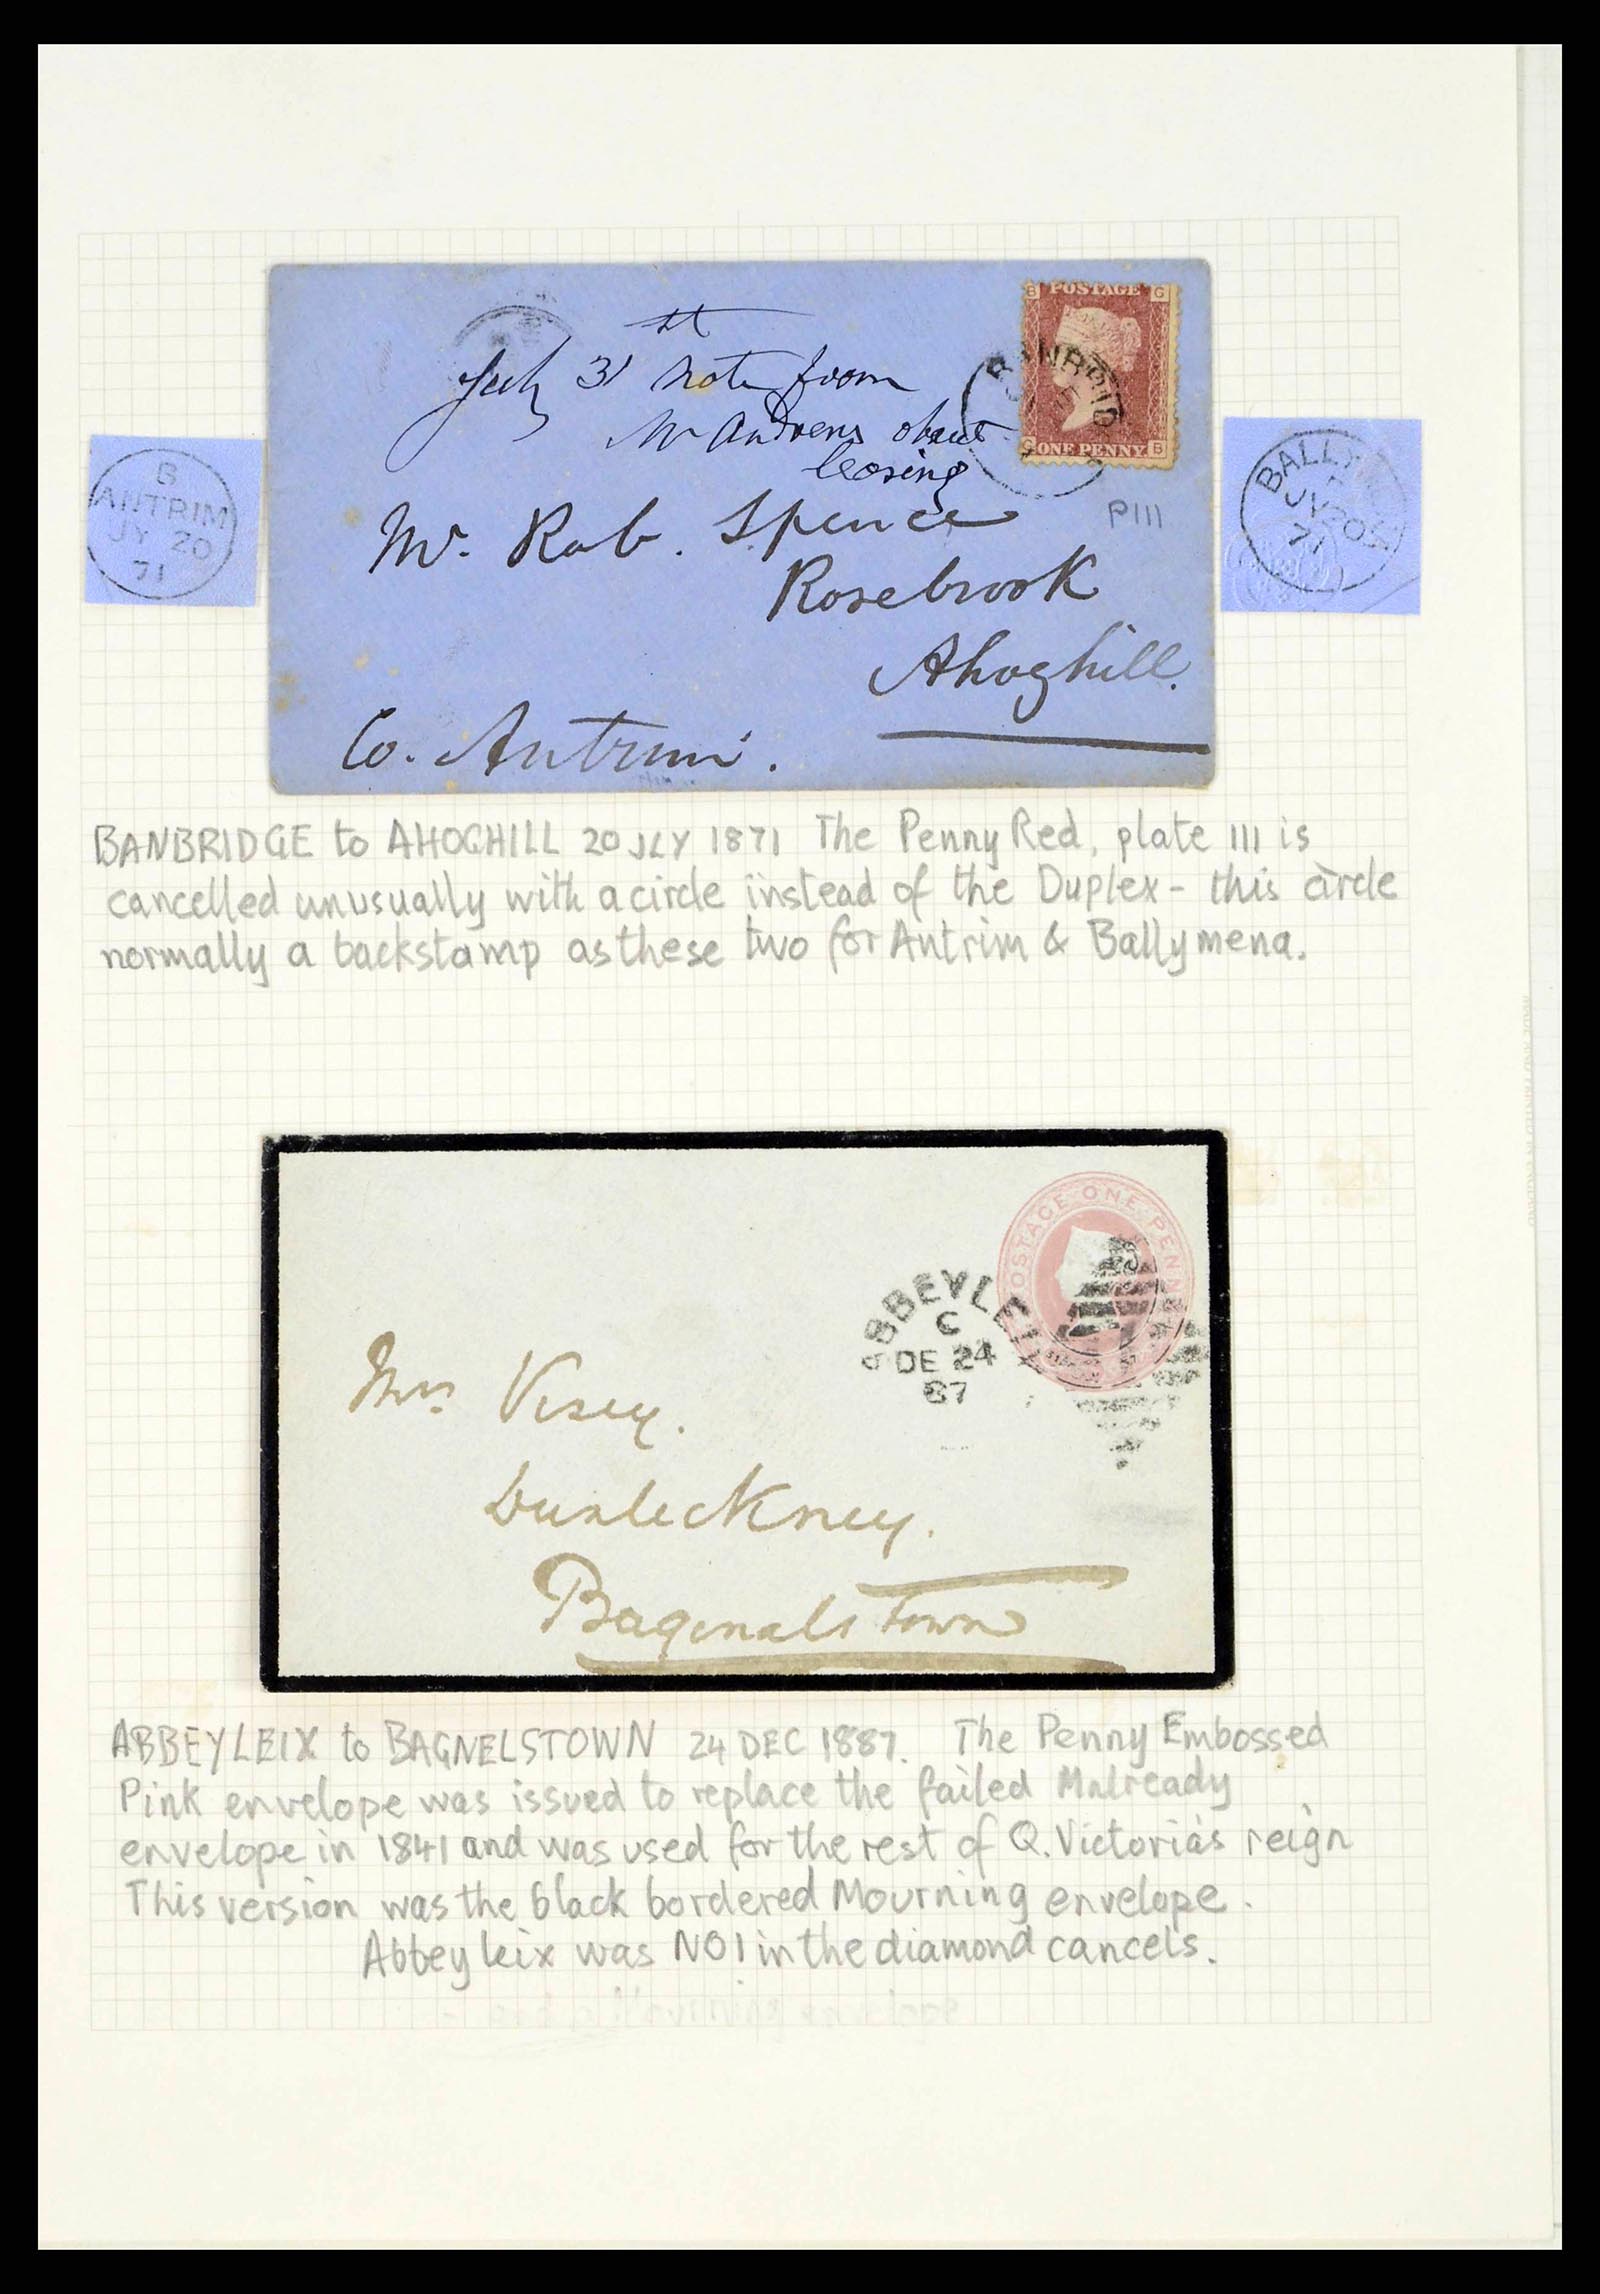 July 31st Note from
Mr Andrews about
leasing
B POSTAGE G
BANBRIDG
G ONE PENNY B
P111
B
ANTRIM
JY 20
71
BALLYMENA
JY 20
71
Mr. Rob. Spence
Rosebrook
Ahoghill.
Co. Antrim.
BANBRIDGE to AHOGHILL 20 JLY 1871 The Penny Red, plate 111 is
cancelled unusually with a circle instead of the Duplex - this circle
normally a backstamp as these two for Antrim & Ballymena.
POSTAGE ONE PENNY
ABBEYLEIX
C
DE 24
87
Mrs Vesey.
Dunleckney.
Bagenalstown
ABBEYLEIX to BAGNELSTOWN 24 DEC 1887. The Penny Embossed
Pink envelope was issued to replace the failed Mulready
envelope in 1841 and was used for the rest of Q. Victoria's reign
This version was the black bordered Mourning envelope.
Abbeyleix was NO 1 in the diamond cancels.